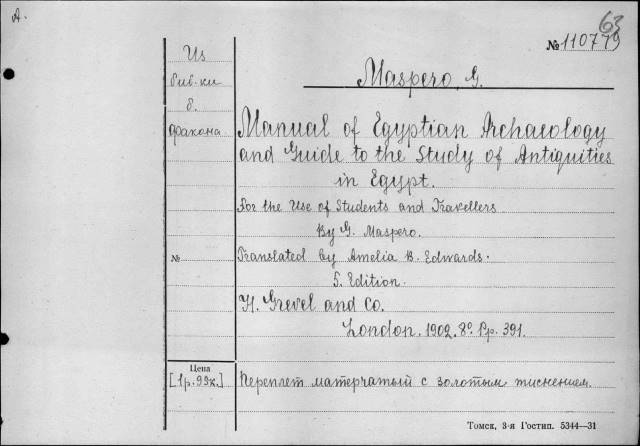 A.
63
№ 110779
Из
биб-ки
б.
факона
Maspero, G.
Manual of Egyptian Archaeology
and Guide to the Study of Antiquities
in Egypt.
For the Use of Students and Travellers
By G. Maspero.
№
Translated by Amelia B. Edwards.
5. Edition.
H. Grevel and Co.
London. 1902. 8º. Pp. 391.
Цена
[1р. 99к.]
Переплет матерчатый с золотым тиснением.
Томск, 3-я Гостип. 5344—31